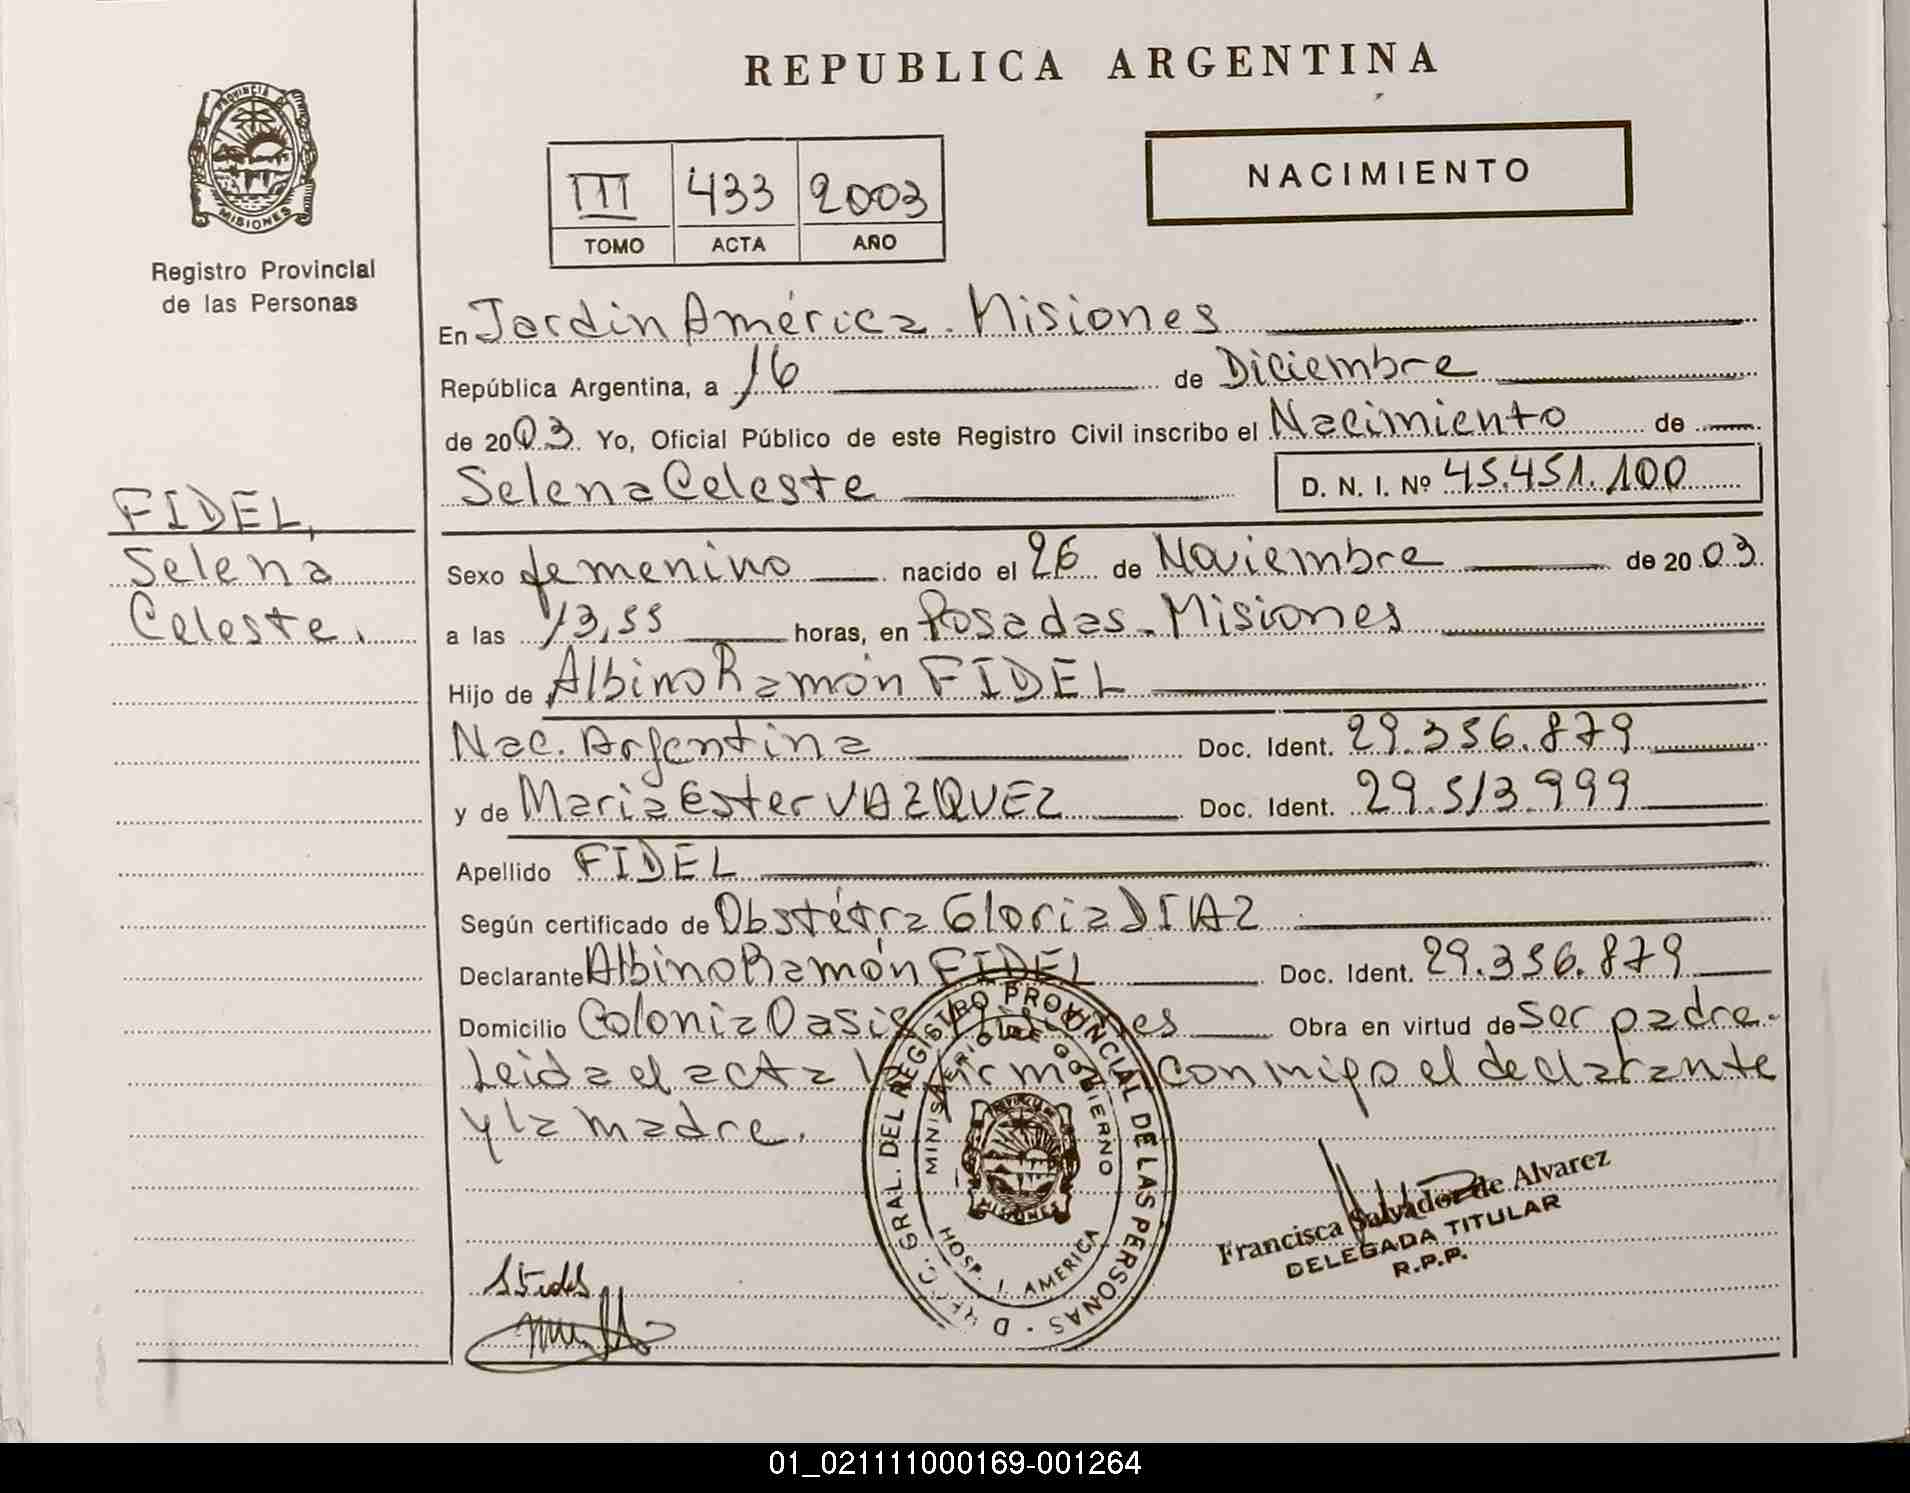 REPUBLICA ARGENTINA
PROVINCIA DE
MISIONES
Registro Provincial
de las Personas
III 433 2003
TOMO ACTA AÑO
NACIMIENTO
En Jardín América - Misiones
República Argentina, a 16 de Diciembre
de 2003. Yo, Oficial Público de este Registro Civil inscribo el Nacimiento de
Selena Celeste D. N. I. Nº 45.451.100
FIDEL,
Selena
Celeste.
Sexo femenino nacido el 26 de Noviembre de 2003
a las 13,55 horas, en Posadas - Misiones
Hijo de Albino Ramón FIDEL
Nac. Argentina Doc. Ident. 29.356.879
y de Maria Ester VAZQUEZ Doc. Ident. 29.513.999
Apellido FIDEL
Según certificado de Obstétra Gloria DIAZ
Declarante Albino Ramón FIDEL Doc. Ident. 29.356.879
Domicilio Colonia Oasis Misiones Obra en virtud de ser padre.
Leida el acta la firman conmigo el declarante
y la madre.
GRAL. DEL REGISTRO PROVINCIAL DE LAS PERSONAS
MINISTERIO DE GOBIERNO
PROVINCIA DE
MISIONES
HOSP. J. AMERICA
Francisca Salvador de Alvarez
DELEGADA TITULAR
R.P.P.
01_021111000169-001264